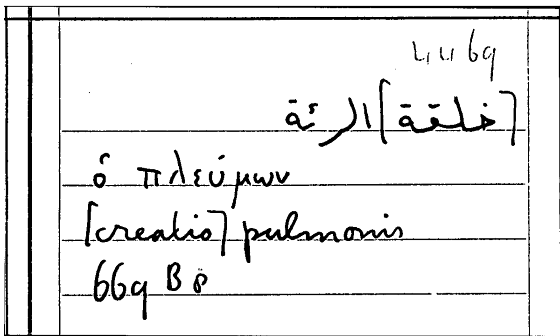 4469
[خلقة] الرئة
ὁ πλεύμων
[creatio] pulmonis
669 B 8